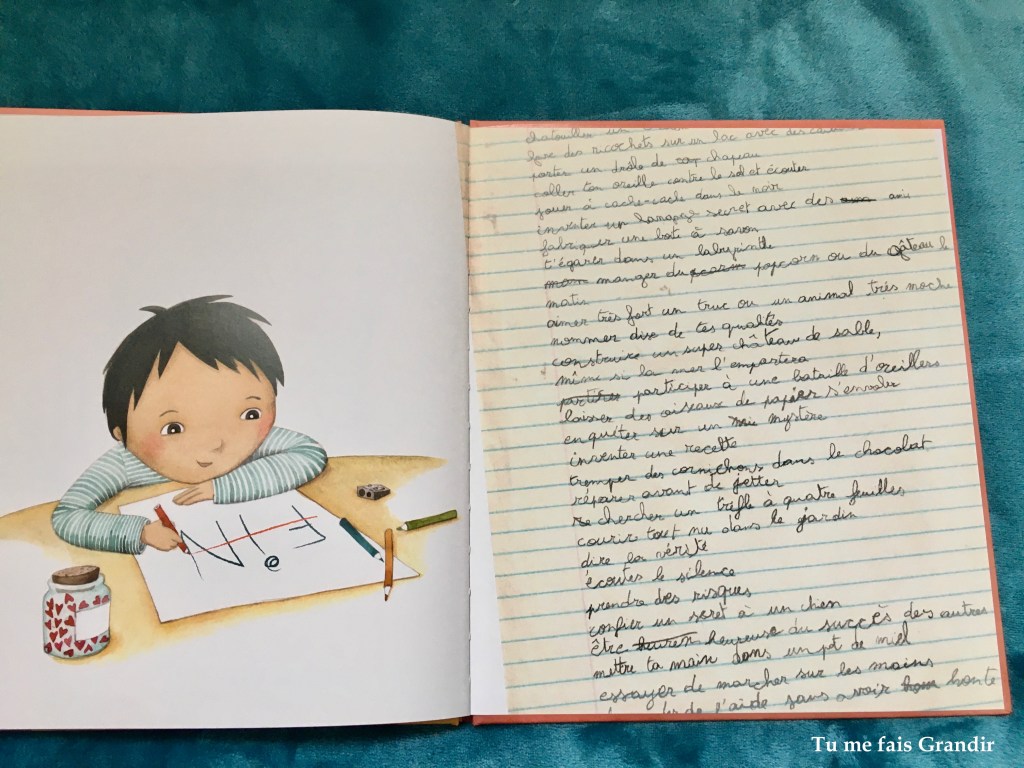 FIN
chatouiller un
faire des ricochets sur un lac avec des
porter un drôle de chapeau
coller ton oreille contre le sol et écouter
jouer à cache-cache dans le noir
inventer un langage secret avec des amis
fabriquer une boîte à savon
t'égarer dans un labyrinthe
manger du popcorn ou du gâteau le
matin
aimer très fort un truc ou un animal très moche
nommer dix de tes qualités
construire un super château de sable,
même si la mer l'emportera
participer à une bataille d'oreillers
laisser des oiseaux de papier s'envoler
enquêter sur un mystère
inventer une recette
tremper des cornichons dans le chocolat
réparer avant de jetter
chercher un trèfle à quatre feuilles
courir tout nu dans le jardin
dire la vérité
écouter le silence
prendre des risques
confier un secret à un chien
être heureuse du succès des autres
mettre ta main dans un pot de miel
essayer de marcher sur les mains
de l'aide sans avoir honte
Tu me fais Grandir